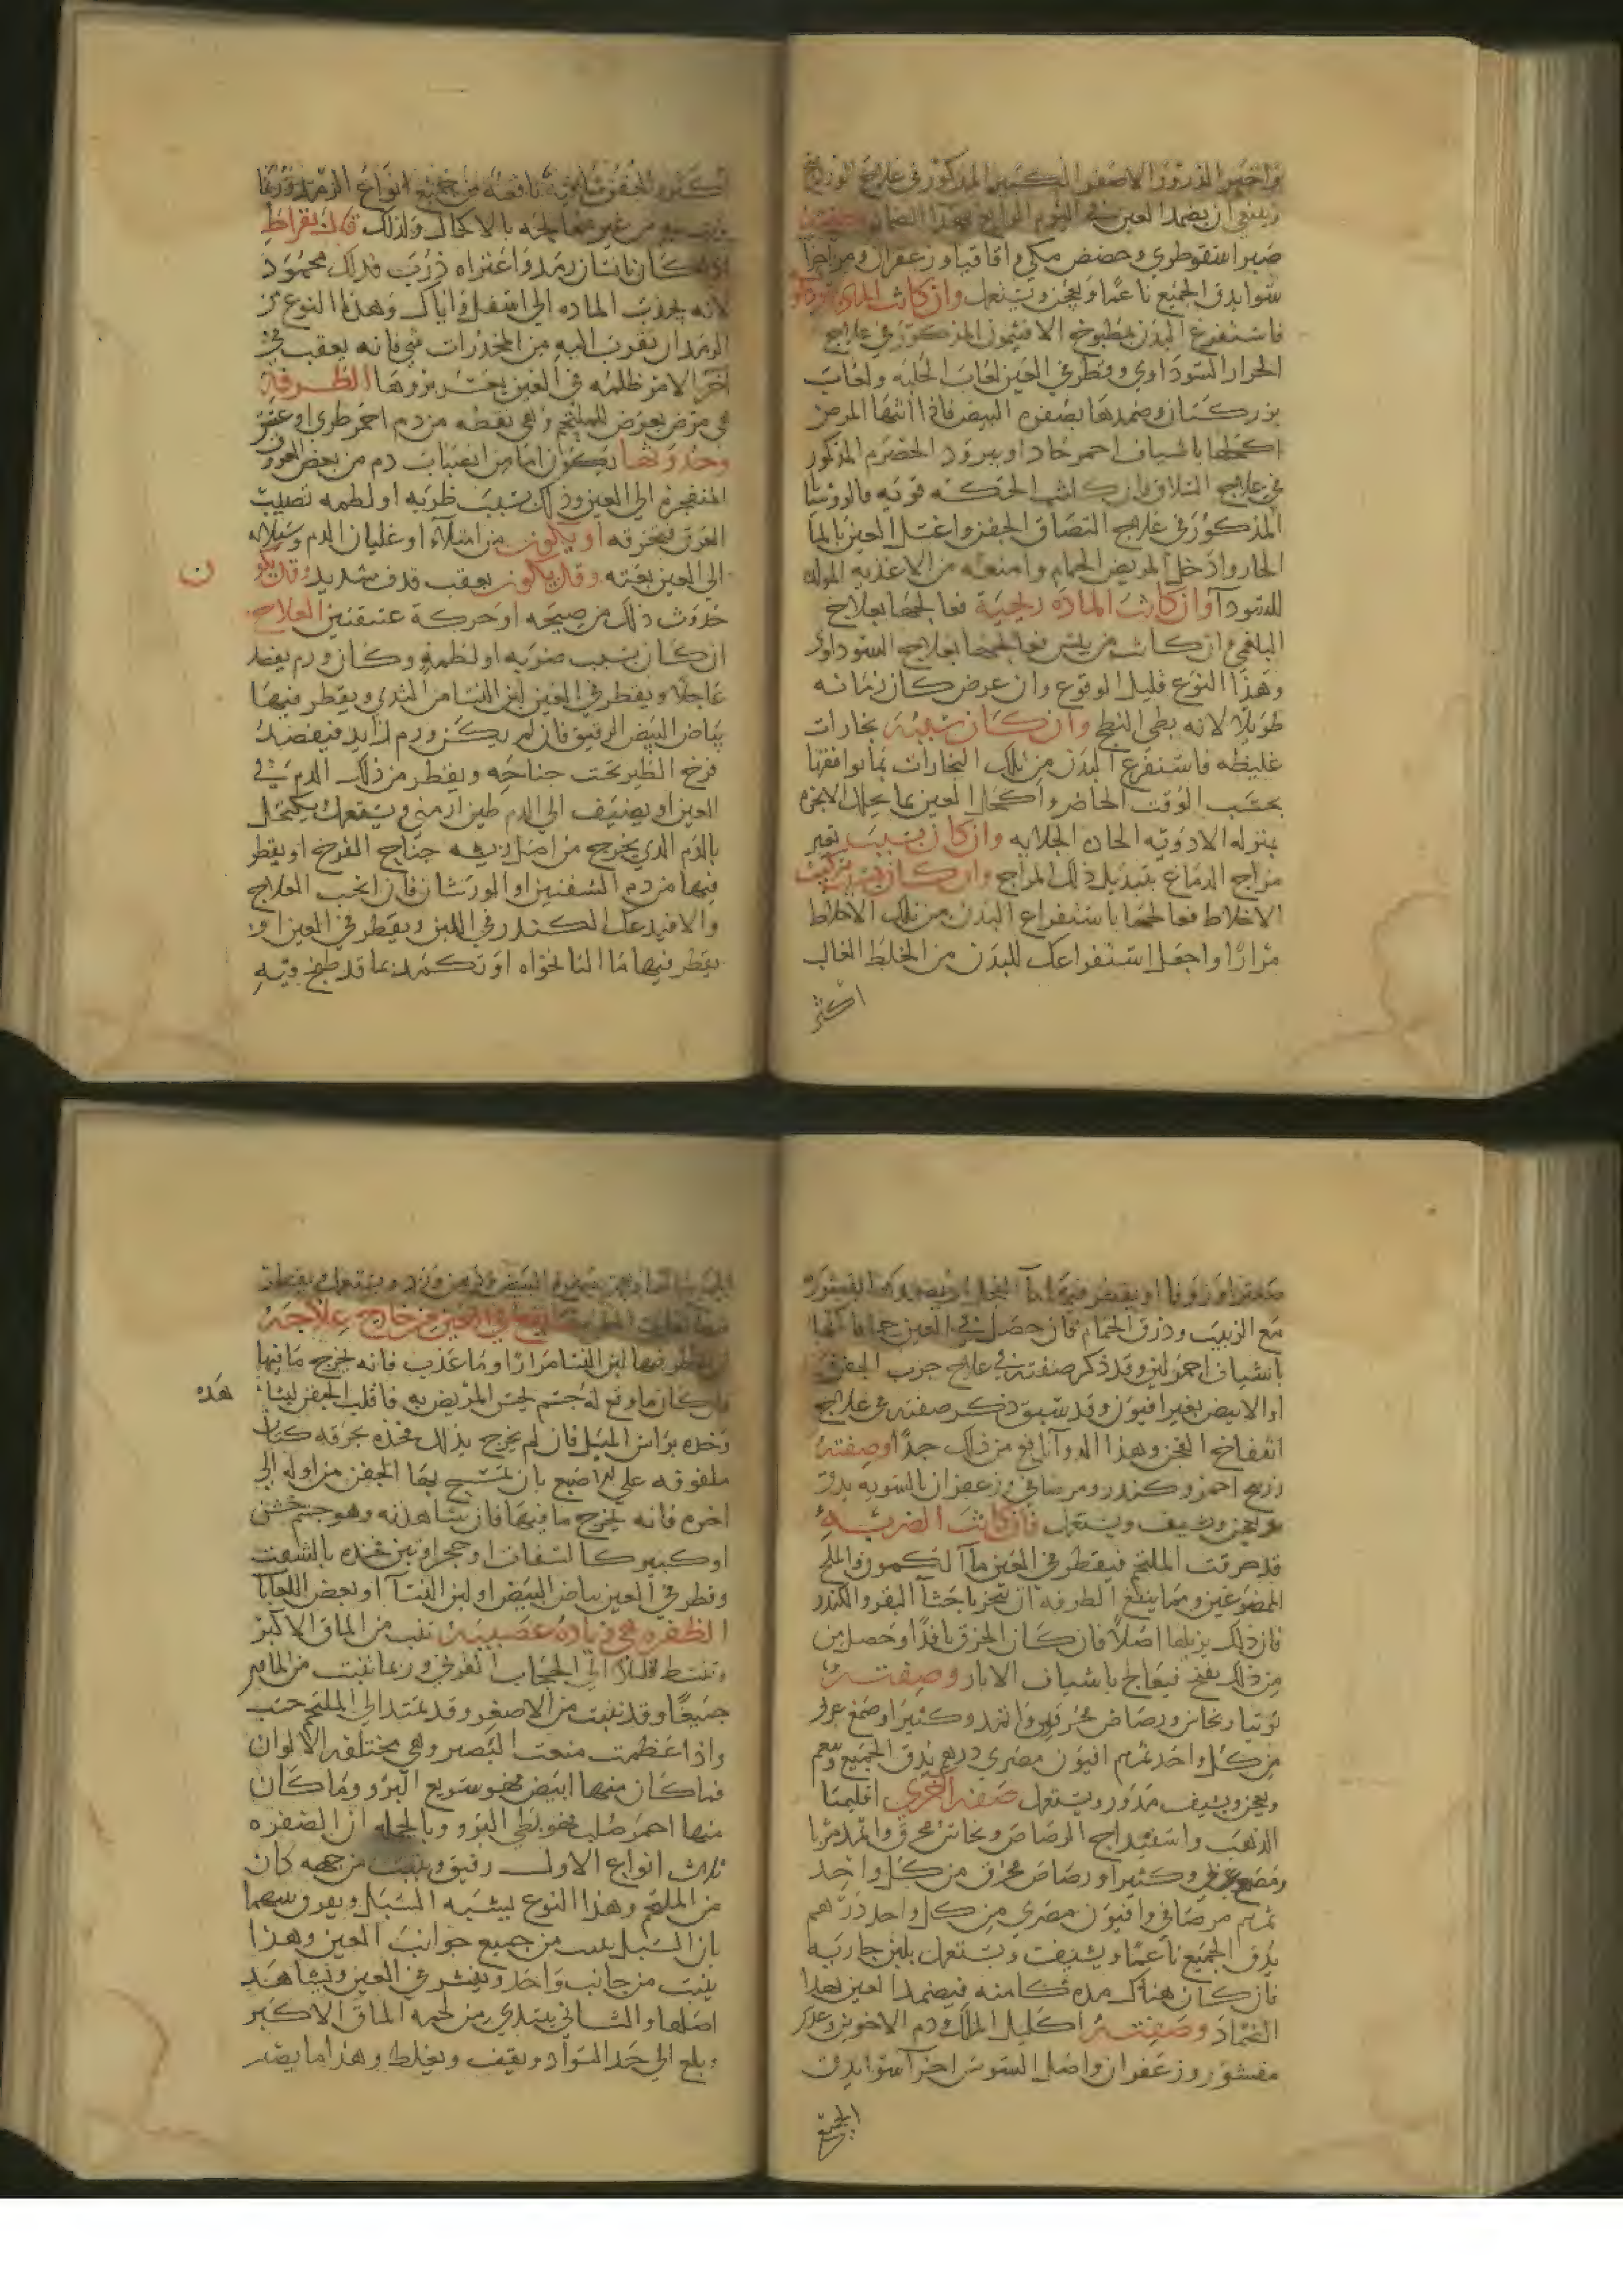 واخير الذرور الاصفر الكبير المذكور في علاج الوردينج
وينبغي ان يضمد العين في اليوم الرابع بهذا الضماد وصفته
صبر اسقوطري وحضض مكي واقاقيا وزعفران ومر اجزا
سوا يدق الجميع ناعما ويعجن ويستعمل وان كانت الماده سودا
فاستفرغ البدن بمطبوخ الافتيمون المذكور في علاج
الجرار السوداوي وقطر في العين لعاب الحلبه ولعاب
بزر كتان وضمدها بصفرة البيض فاذا انتها المرض
اكحلها باشياف احمر حاد او ببرود الحصرم المذكور
في علاج السلاق فان كانت الحركه قويه فالروشنايا
المذكور في علاج التصاق الجفن واغسل العين بالما
الحار وادخل المريض الحمام وامنعه من الاغذيه المولده
للسودا وان كانت الماده ريحيه فعالجها بعلاج
البلغمي وان كانت من يبس فعالجها بعلاج السوداوي
وهذا النوع قليل الوقوع وان عرض كان زمانه
طويلا لانه بطي النضج وان كان سببه بخارات
غليظه فاستفرغ البدن من تلك البخارات بما يوافقها
بحسب الوقت الحاضر واكحل العين بما يحلل الابخره
بمنزله الادويه الحاده الجلايه وان كان بسبب تغير
مزاج الدماغ بتبديل ذلك المزاج وان كان بسبب تركيب
الاخلاط فعالجها باستفراغ البدن من تلك الاخلاط
مرارا واجعل استفراغك للبدن من الخلط الغالب
اكثر
نافعه من جميع انواع الرمد وربما
من غير معالجه بالاكحال ولذلك قال بقراط
اذا كان بانسان رمد واعتراه ذرب فذلك محمود
لانه يجذب الماده الي اسفل واياك وهذا النوع من
الرمد ان تقرب اليه من المخدرات شي فانه يعقب في
اخر الامر ظلمه في العين يعسر بروها الطرفة
هي مرض يعرض للملتحم وهي نقطه من دم احمر طري او عتيق
وحدوثها يكون اما من انصباب دم من بعض العروق
المنفجره الي العين وذلك بسبب ضربه او لطمه تصيب
العرق فتخرقه او يكون من امتلا او غليان الدم وسيلانه
الي العين بغته وقد يكون بعقب قذف شديد وقد يكو
ن
حدوث ذلك من صيحه او حركة عنيفتين العلاج
ان كان بسبب ضربه او لطمه وكان ورم يفصد
عاجلا ويقطر في العين لبن النسا من الثدي ويقطر فيها
بياض البيض الرقيق فان لم يكن ورم زايد فيفصد
فرخ الطير تحت جناحه ويقطر من ذلك الدم في
العين او يضيف الي الدم طين ارمني ويستعمل يكتحل
بالدم الذي يخرج من اصل ريشه جناح الفرخ او يقطر
فيها من دم الشفنين او الورشان فان انجب العلاج
والا فيدعك الكندر في اللبن ويقطر في العين او
يقطر فيها ما النانخواه او تكمد بما قد طبخ فيه
صعتر او زوفا او يقطر فيها ما الفجل او يضمد
مع الزبيب وذرق الحمام فان حصل في العين
باشياف احمر لين وقد ذكر صفته في علاج جرب الجفن
او الابيض بغير افيون وقد سبق ذكر صفته في علاج
انتفاخ الجفن وهذا الدوا نافع من ذلك جدا وصفته
زرنيخ احمر وكندر ومر صافي وزعفران بالسويه يدق
ويعجن ويشيف ويستعمل فان كانت الضربة
قد حرقت الملتحم فيقطر في العين ما الكمون والملح
الممضوغين ومما ينفع الطرفه ان تبخر باخثا البقر والكندر
فان ذلك يزيلها اصلا فان كان الخرق نافذا وحصل من
من ذلك يفتح فيعالج باشياف الابار وصفته
توتيا ونحاس ورصاص محرقين واثمد وكثيرا وصمغ عربي
من كل واحد درهم افيون مصري درهم يدق الجميع وينعم
ويعجن ويشيف مدور ويستعمل صفه اخري اقليميا
الذهب واسفيداج الرصاص ونحاس محرق واثمد
وصمغ عربي وكثيرا ورصاص محرق من كل واحد
مر صافي وافيون مصري من كل واحد درهم
يدق الجميع ناعما ويشيف ويستعمل بلبن جاريه
فان كان هناك مده كامنه فيضمد العين بهذا
الضماد وصفته اكليل الملك ودم الاخوين وعدس
مقشور وزعفران واصل السوس اجزا سوا يدق
الجميع
الجميع ناعما ويعجن بصفره البيض ودهن ورد ويستعمل ويقطر
يقع في العين من خارج علاجه
ان يقطر فيها لبن النسا مرارا وما عذب فانه يخرج ما فيها
فان كان ما وقع له جسم يحس المريض به فاقلب الجفن ليشا
هده
وخذه براس الميل فان لم يخرج بذلك فخذه بخرقه كتان
ملفوفه علي الاصبع بان تمسح بها الجفن من اوله الي
اخره فانه يخرج ما فيها فان شاهدته وهو جسم خشن
او كبير كالسفاه او حجر او تبن فخذه بالشفت
وقطر في العين بياض البيض او لبن النسا او بعض اللعابا
الظفره هي زيادة عصبيه تنبت من الماق الاكبر
وتنبسط قليلا الي الحجاب القرني وربما نبتت من الماقين
جميعا وقد نبتت من الاصغر وقد تمتد الي الملتحم حسب
واذا عظمت منعت البصر وهي مختلفه الالوان
فما كان منها ابيض فهو سريع البرو وما كان
منها احمر صلب فهو بطي البرو وبالجمله ان الضفره
ثلاث انواع الاول رقيق وينبت من جهه كان
من الملتحم وهذا النوع يشبه السبل ويفرق بينهما
بان السبل ينبت من جميع جوانب العين وهذا
ينبت من جانب واحد وينشر في العين ويشاهد
اصلها والثاني يبتدي من لحمه الماق الاكبر
ويبلغ الي حد السواد ويقيف ويغلظ وهذا ما يضر